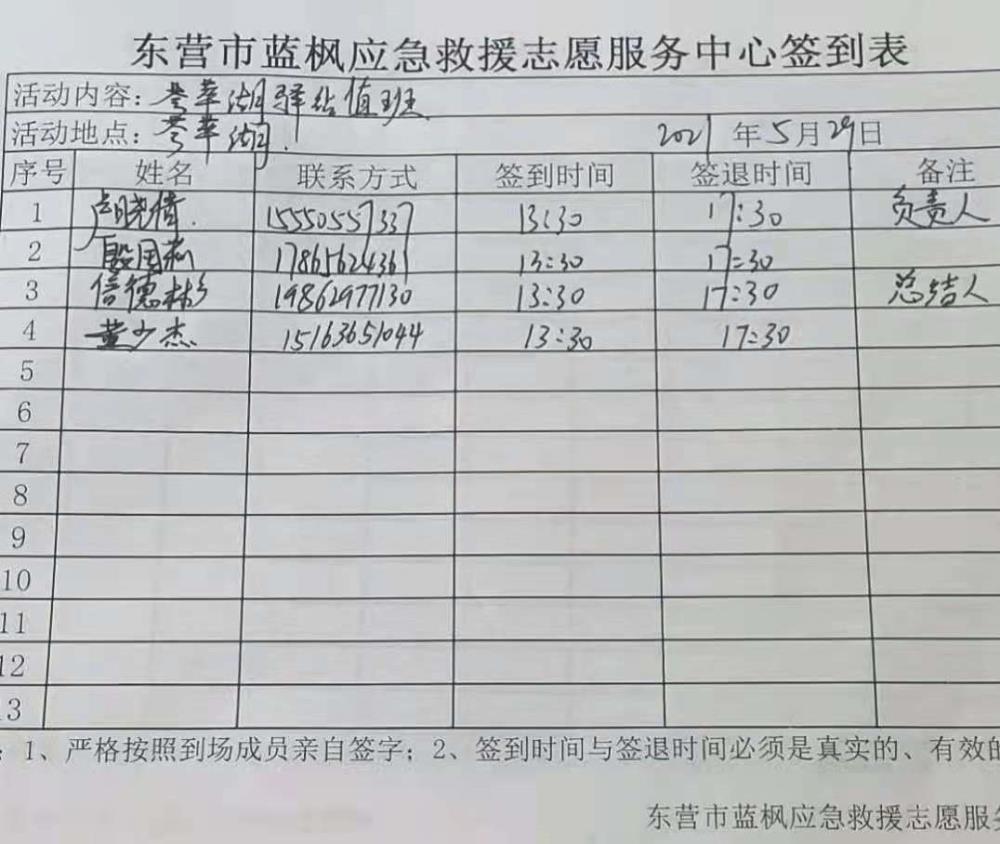 东营市蓝枫应急救援志愿服务中心签到表
活动内容：荟萃湖驿站值班
活动地点：荟萃湖 2021年5月29日
序号 姓名 联系方式 签到时间 签退时间 备注
1 卢晓倩 15550557337 13:30 17:30 负责人
2 殷国 17865624361 13:30 17:30
3 信德彬 19862977130 13:30 17:30 总结人
4 董少杰 15163651044 13:30 17:30
5
6
7
8
9
10
11
12
13
：1、严格按照到场成员亲自签字；2、签到时间与签退时间必须是真实的、有效的
东营市蓝枫应急救援志愿服务